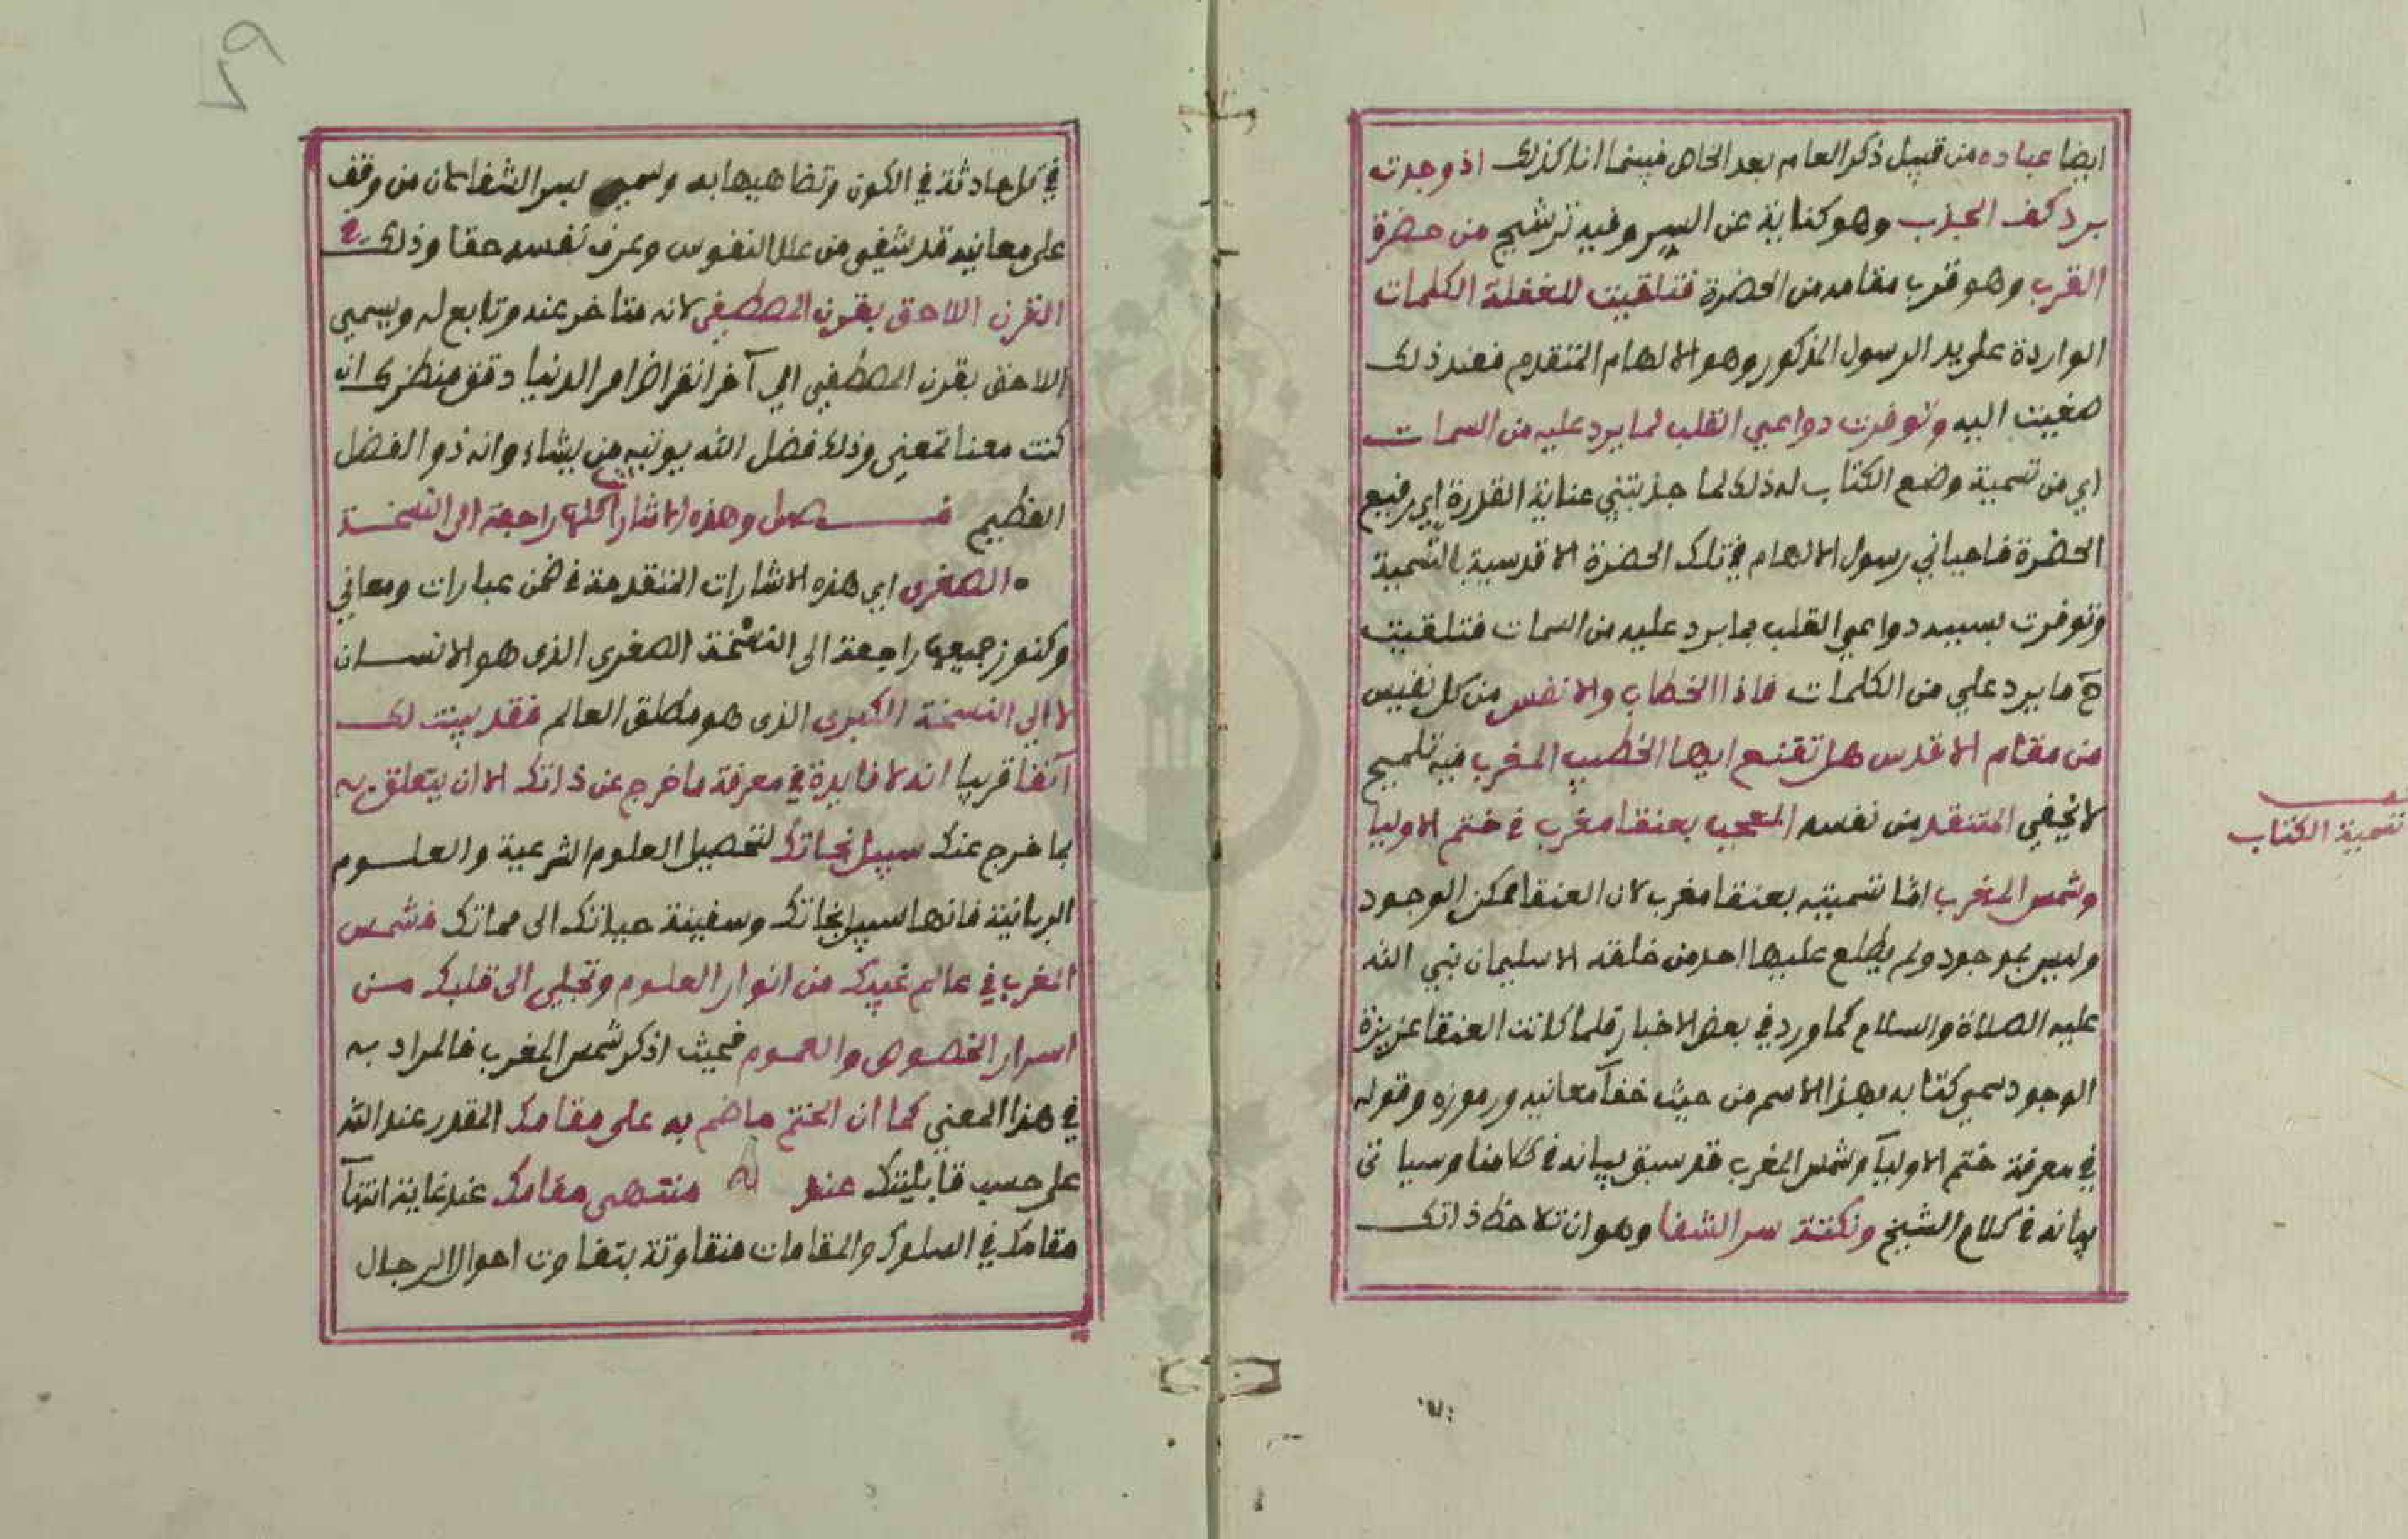 ايضا عباده من قبيل ذكر العام بعد الخاص فبينما انا كذلك اذ وجدت
برد كف الجذب وهو كناية عن السير وفيه ترشيح من حضرة
القرب وهو قرب مقامه من الحضرة فتلقيت للغفلة الكلمات
الواردة على يد الرسول المذكور وهو الالهام المتقدم فعند ذلك
صغيت اليه وتوفرت دواعي القلب لما يرد عليه من السمات
اي من تسمية وضع الكتاب له ذلك لما جذبتني عناية القدرة اي رفيع
الحضرة فاحياني رسول الالهام في تلك الحضرة الاقدسية بالتسمية
وتوفرت بسببه دواعي القلب بما يرد عليه من السمات فتلقيت
ح ما يرد علي من الكلمات فاذا الخطاب والانفس من كل نفيس
من مقام الاقدس هل تقنع ايها الخطيب المغرب فيه تلميح
لا يخفي المتنقد من نفسه المعجب بعنقا مغرب في ختم الاوليا
وشمس المغرب اما تسميته بعنقا مغرب لان العنقا ممكن الوجود
وليس بموجود ولم يطلع عليها احد من خلقه الا سليمان نبي الله
عليه الصلاة والسلام كما ورد في بعض الاخبار فلما كانت العنقا عزيزة
الوجود سمي كتابه بهذا الاسم من حيث خفآ معانيه ورموزه وقوله
في معرفة ختم الاوليآ وشمس المغرب قد سبق بيانه في كلامنا وسياتى
بيانه في كلام الشيخ ونكتة سر الشفا وهو ان تلاحظ ذاتك
تسمية الكتاب
في كل حادثة في الكون وتضاهيها به وسمي بسر الشفا لان من وقف
على معانيه قد شفي من علل النفوس وعرف نفسه حقا وذلك في
القرن اللاحق بقرن المصطفي لانه متاخر عنه وتابع له ويسمي
اللاحق بقرن المصطفي الي آخر انقراض امر الدنيا دقق منظرك ان
كنت معنا تمعني وذلك فضل الله يوتيه من يشاء وانه ذو الفضل
العظيم فصل وهذه الاشارات كلها راجعة الى النسخة
الصغرى اي هذه الاشارات المتقدمة في ضمن عبارات ومعاني
وكنوز جميعها راجعة الى النسخة الصغرى الذى هو الانسان
لا الى النسخة الكبرى الذى هو مطلق العالم فقد بينت لك
آنفا قريبا انه لا فايدة في معرفة ما خرج عن ذاتك الا ان يتعلق به
بما خرج عنك سبيل نجاتك لتحصيل العلوم الشرعية والعلوم
الربانية فانها سبيل نجاتك وسفينة حياتك الى مماتك فشمس
المغرب في عالم غيبك من انوار العلوم وتجلي الى قلبك من
اسرار الخصوص والعموم فحيث اذكر شمس المغرب فالمراد به
في هذا المعني كما ان الختم ما ختم به على مقامك المقدر عند الله
على حسب قابليتك عند منتهى مقامك عند غاية انتهآ
مقامك في السلوك والمقامات متفاوتة بتفاوت احوال الرجال